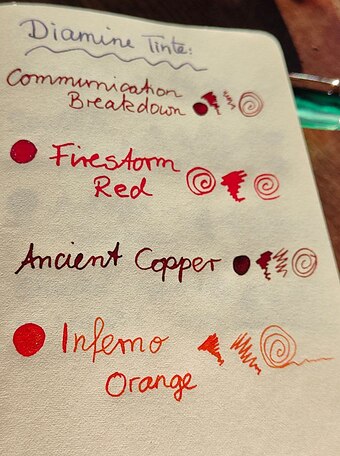 Diamine Tinte:
Communication
Breakdown
Firestorm
Red
Ancient Copper
Inferno
Orange